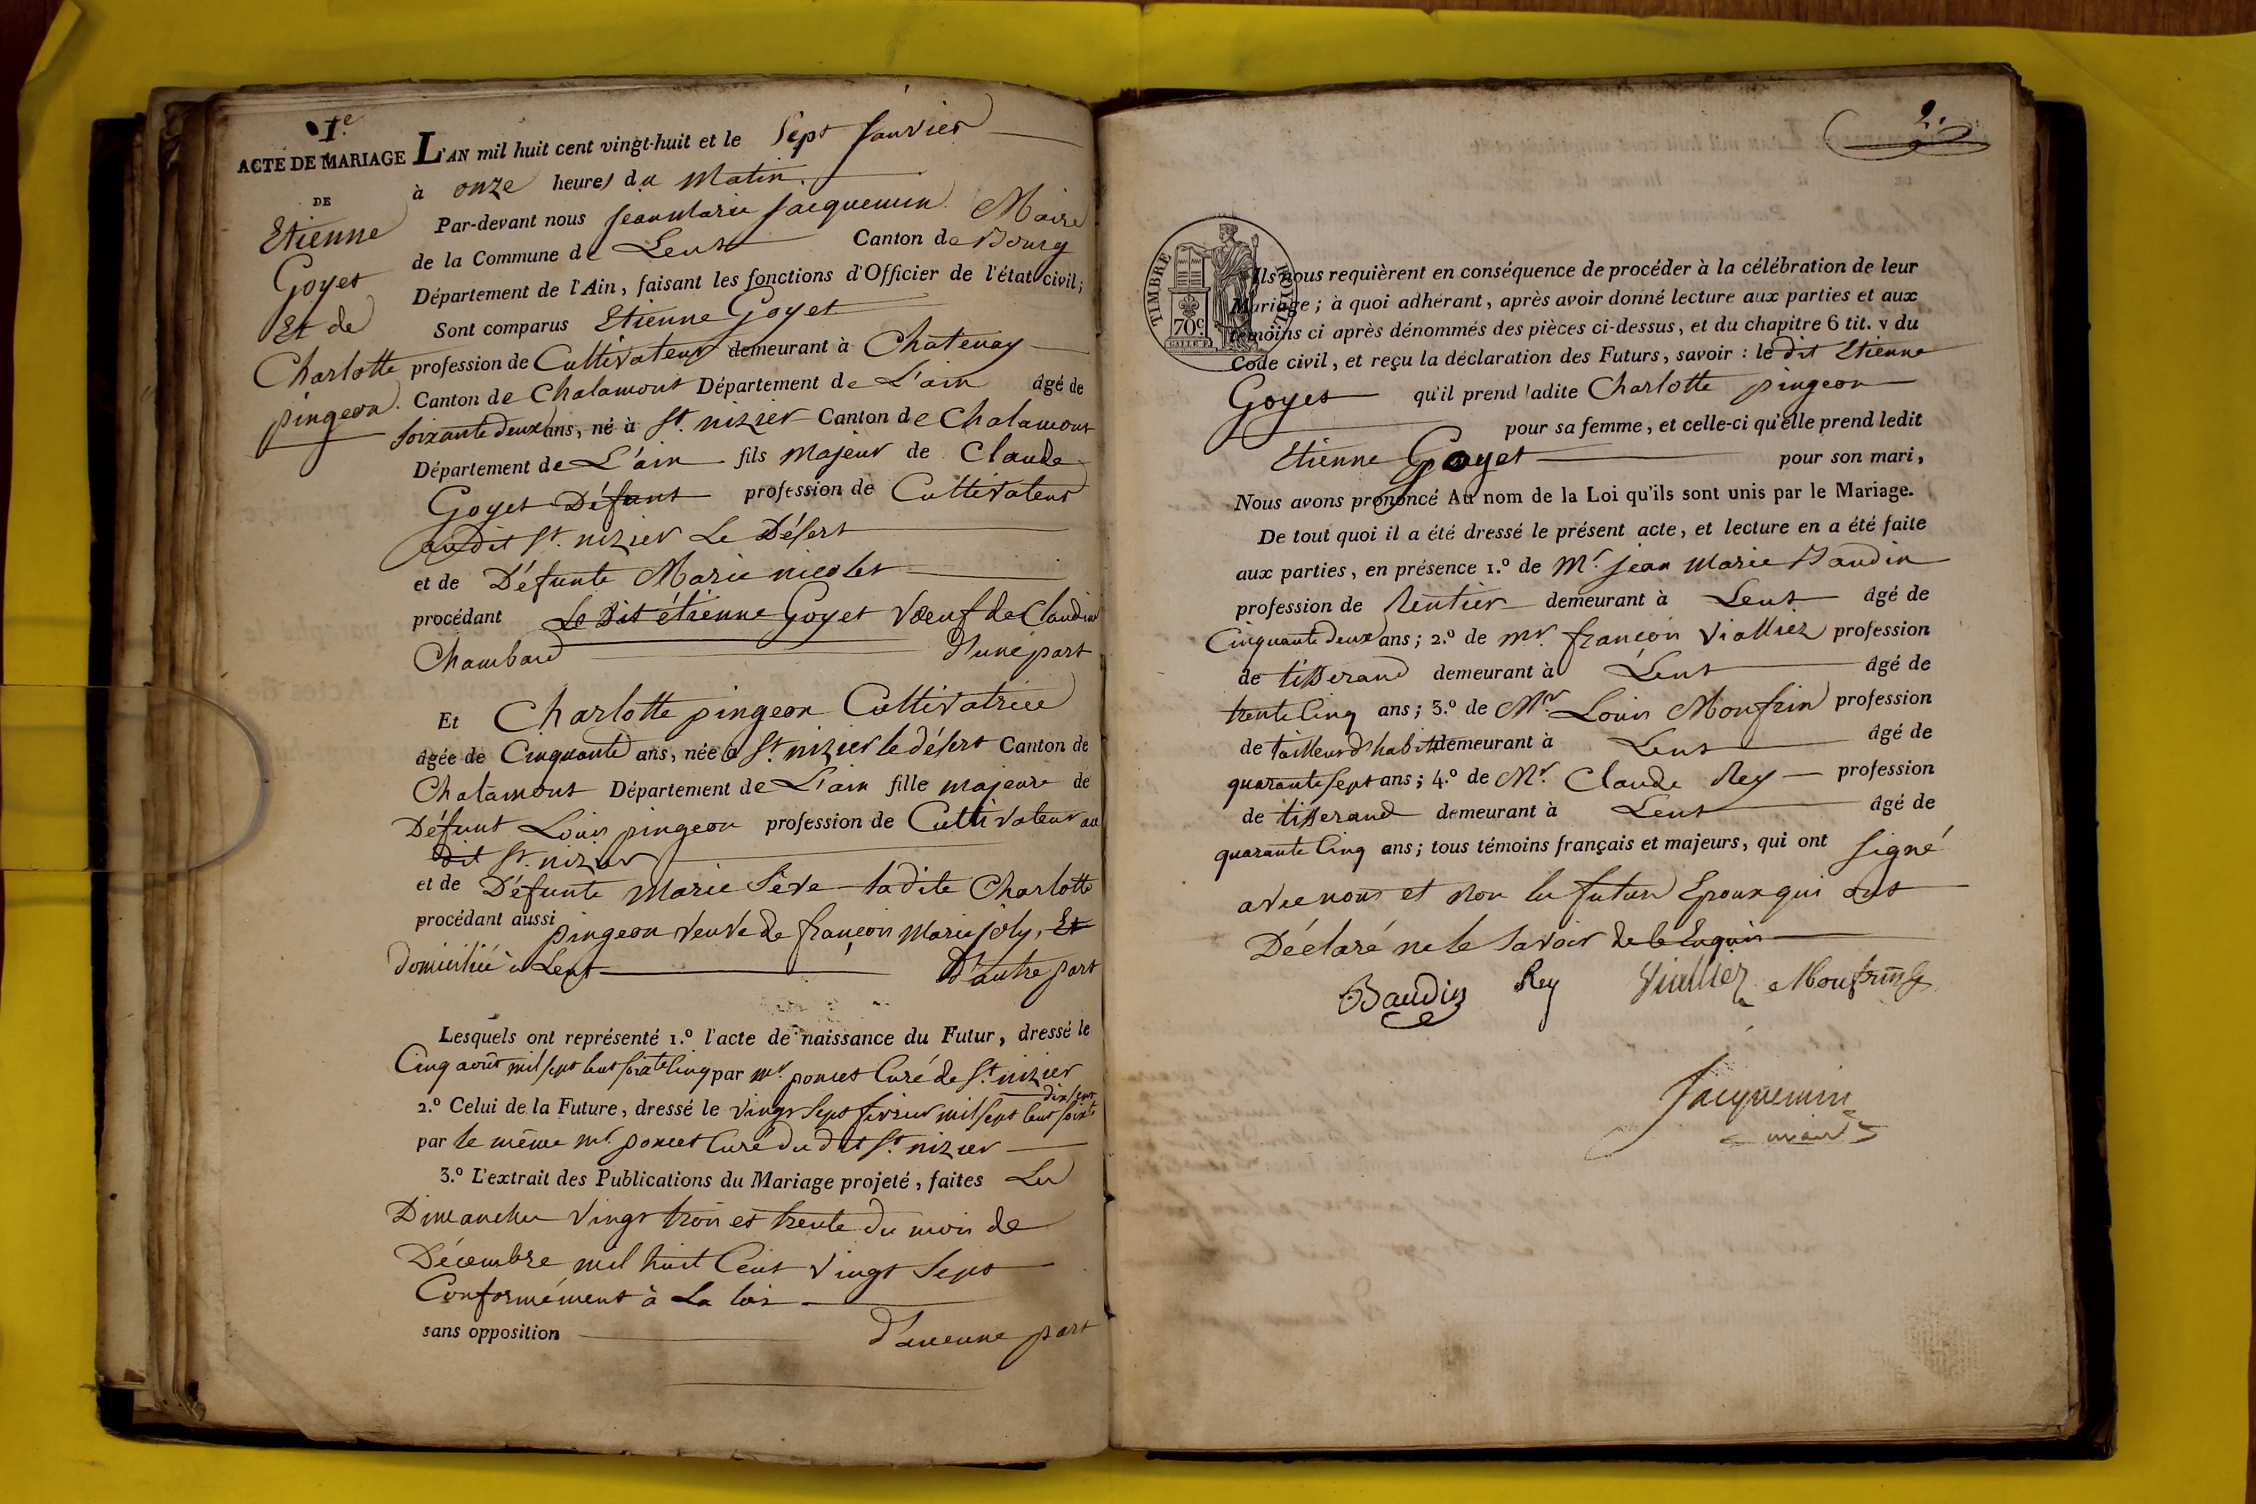 1.e
ACTE DE MARIAGE
DE
Etienne
Goyet
Et de
Charlotte
pingeon.
L'AN mil huit cent vingt-huit et le Sept janvier
à onze heures du matin.
Par-devant nous jean marie jacquemin Maire
de la Commune de Lent Canton de Bourg
Département de l'Ain, faisant les fonctions d'Officier de l'état civil;
Sont comparus Etienne Goyet
profession de Cultivateur demeurant à Chatenay
Canton de Chalamont Département de L'ain âgé de
soixante deux ans, né à St. nizier Canton de Chalamont
Département de L'ain fils majeur de Claude
Goyet Défunt profession de Cultivateur
audit St. nizier Le Désert
et de Défunte Marie nicolet
procédant Le dit étienne Goyet vœuf de Claudine
Chambard D'une part
Et Charlotte pingeon Cultivatrice
âgée de Cinquante ans, née à St. nizier le désert Canton de
Chalamont Département de L'ain fille majeure de
Défunt Louis pingeon profession de Cultivateur au
dit St. nizier
et de Défunte Marie Sève ladite Charlotte
procédant aussi pingeon veuve de françois Marie joly, Et
domiciliée à Lent D'autre part
Lesquels ont représenté 1.º l'acte de naissance du Futur, dressé le
Cinq août mil sept cent soixte cinq par mr. poncet Curé de St. nizier
2.º Celui de la Future, dressé le vingt sept février mil sept cent soixte
dix sept
par le même mr. poncet Curé du dit St. nizier
3.º L'extrait des Publications du Mariage projeté, faites Les
Dimanches vingt trois et trente du mois de
Décembre mil huit Cent vingt Sept
Conformément à La loi
sans opposition d'aucune part
2.
TIMBRE ROYAL
70c
Ils nous requièrent en conséquence de procéder à la célébration de leur
Mariage; à quoi adhérant, après avoir donné lecture aux parties et aux
témoins ci après dénommés des pièces ci-dessus, et du chapitre 6 tit. v du
Code civil, et reçu la déclaration des Futurs, savoir: le dit Etienne
Goyet qu'il prend ladite Charlotte pingeon
pour sa femme, et celle-ci qu'elle prend ledit
Etienne Goyet pour son mari,
Nous avons prononcé Au nom de la Loi qu'ils sont unis par le Mariage.
De tout quoi il a été dressé le présent acte, et lecture en a été faite
aux parties, en présence 1.º de Mr. jean Marie Baudin
profession de Rentier demeurant à Lent âgé de
Cinquante deux ans; 2.º de mr françois Viallier profession
de tisserand demeurant à Lent âgé de
trente Cinq ans; 3.º de Mr. Louis Monfrin profession
de tailleur d'habits demeurant à Lent âgé de
quarante sept ans; 4.º de Mr. Claude Rey profession
de tisserand demeurant à Lent âgé de
quarante Cinq ans; tous témoins français et majeurs, qui ont signé
avec nous et non les futurs Epoux qui ont
Déclaré ne le Savoir de ce Enquis
Baudin Rey Viallier Monfrin
Jacquemin
maire